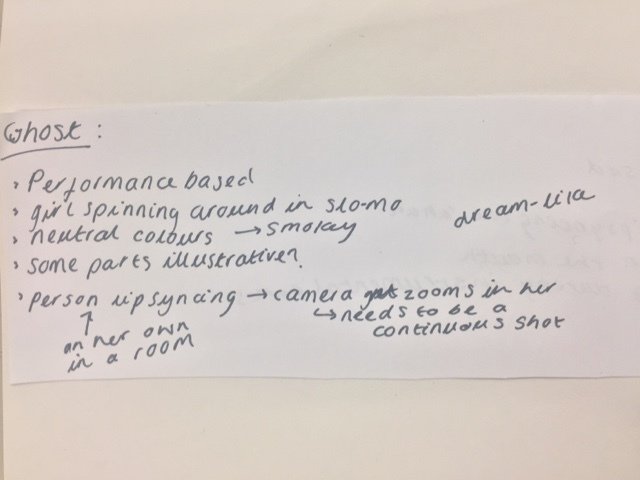 Ghost :
Performance based
girl spinning around in slo-mo
dream-like
neutral colours → smokey
some parts illustrative?
person lipsyncing → camera zooms in her
↳ needs to be a
continuous shot
↑
on her own
in a room